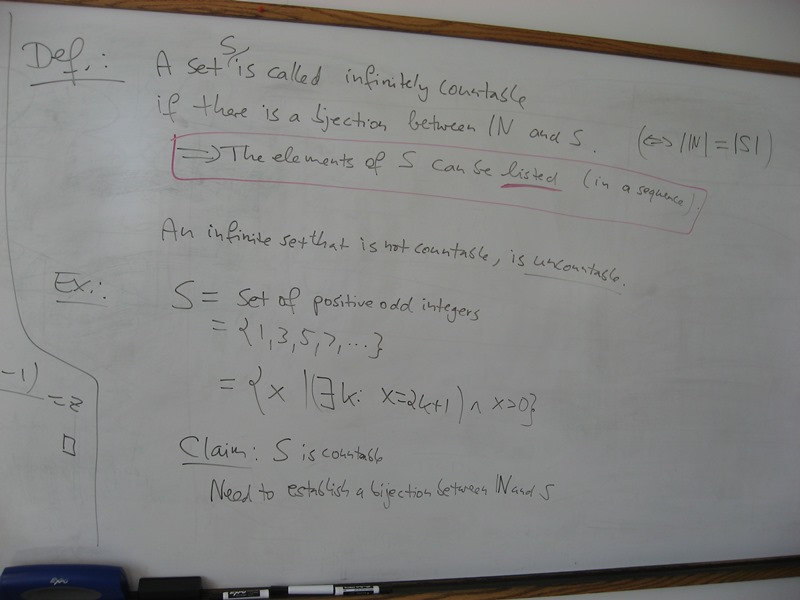 Def.: A set S, is called infinitely countable
if there is a bijection between ℕ and S. (⟺ |ℕ| = |S|)
⟹ The elements of S can be listed (in a sequence).
An infinite set that is not countable, is uncountable.
Ex.: S = set of positive odd integers
= {1, 3, 5, 7, ...}
= {x | (∃k: x=2k+1) ∧ x>0}
-1)
= z
□
Claim: S is countable
Need to establish a bijection between ℕ and S
EXPO